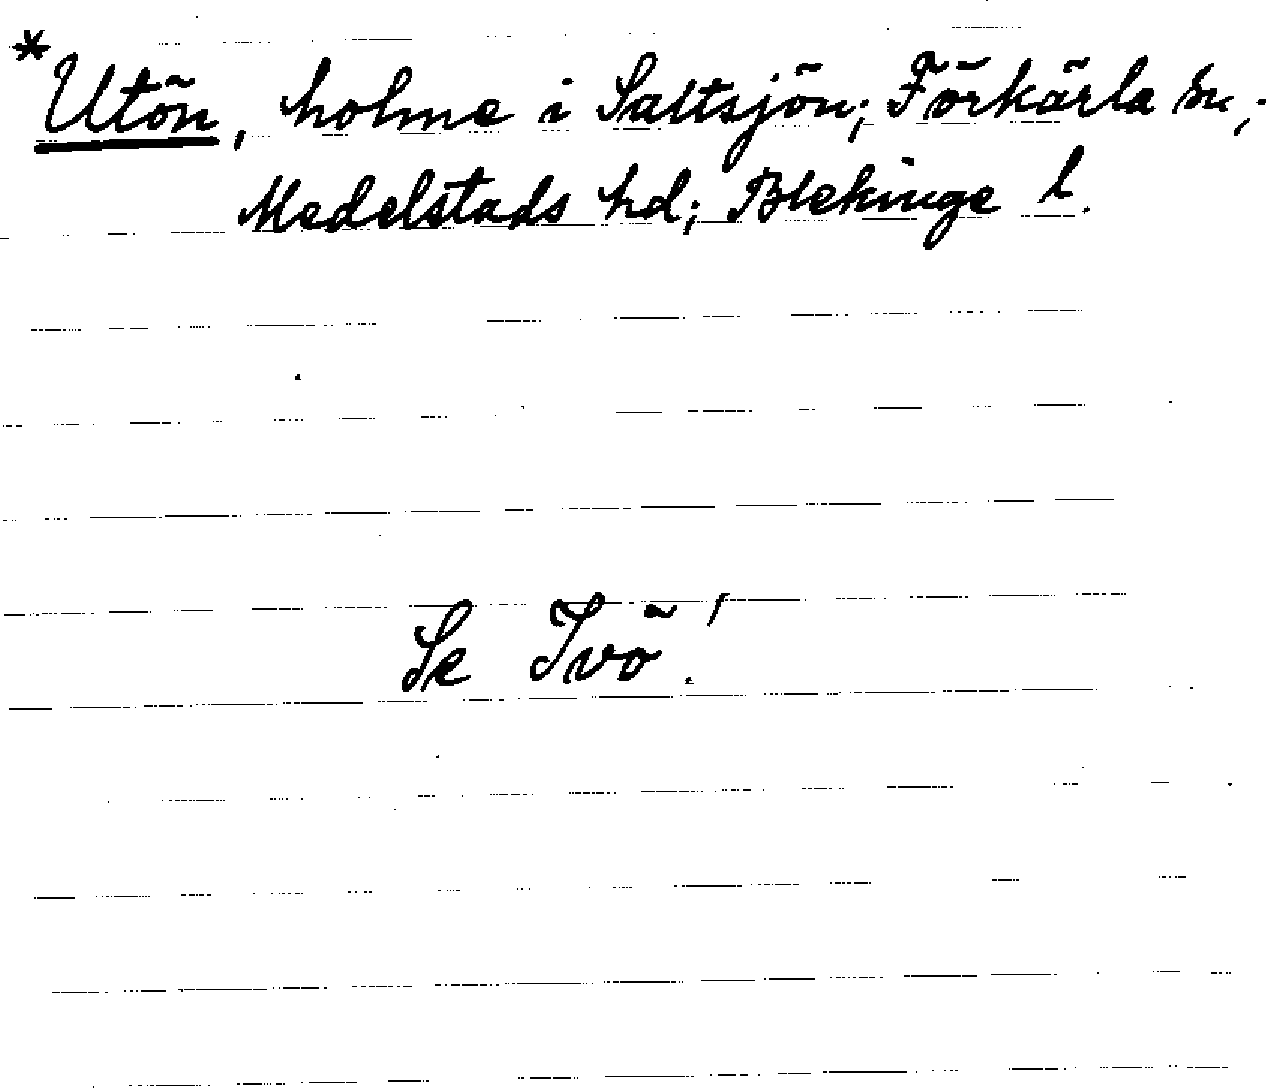 *Utön, holme i Saltsjön; Förkärla sn;
Medelstads hd; Blekinge l.
Se Tvö!